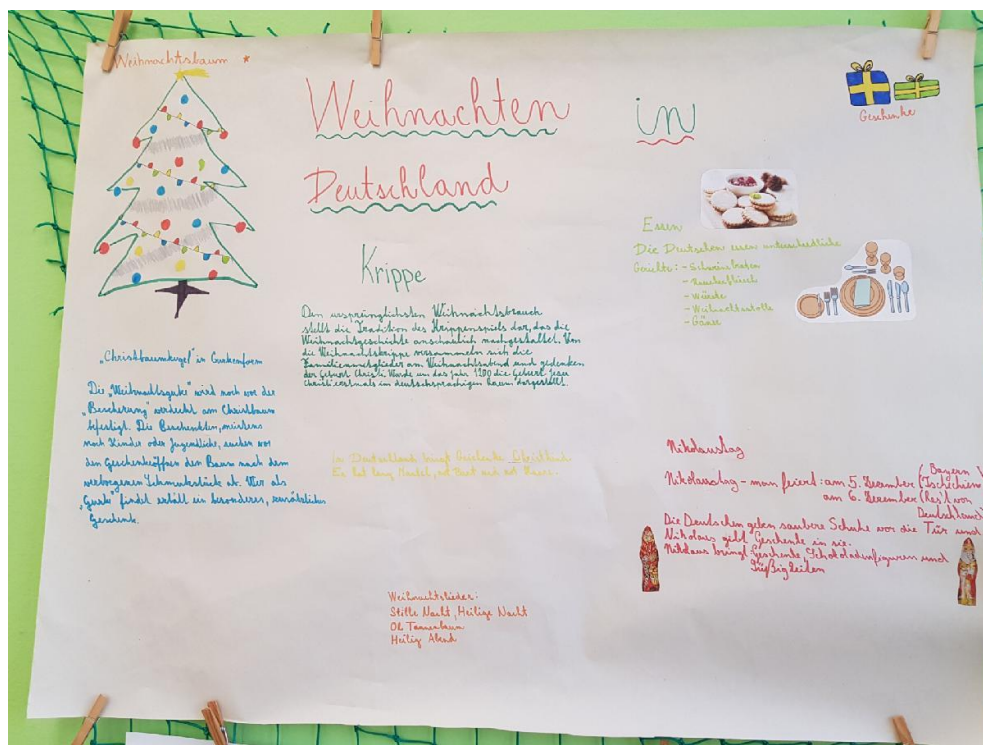 Weihnachtsbaum
Weihnachten in
Deutschland
Geschenke
Krippe
Den ursprünglichsten Weihnachtsbrauch
stellt die Tradition des Krippenspiels dar, das die
Weihnachtsgeschichte anschaulich nachgestaltet. Um
die Weihnachtskrippe versammeln sich die
Familienmitglieder am Weihnachtsabend und gedenken
der Geburt Christi. Wurde um das Jahr 1200 die Geburt Jesu
Christi erstmals im deutschsprachigen Raum dargestellt.
Essen
Die Deutschen essen unterschiedliche
- Schweinebraten
- Würste
- Gänse
„Christbaumkugel" in Gurkenform
Die „Weihnachtsgurke" wird noch vor der
„Bescherung" verdeckt am Christbaum
befestigt. Die Beschenkten, meistens
noch Kinder oder Jugendliche, suchen vor
den Geschenkeöffnen den Baum nach dem
verborgenen Schmuckstücke ab. Wer als
„Gurke" findet erhält ein besonderes, zusätzliches
Geschenk.
In Deutschland bringt Geschenke Christkind
Er hat lang Mantel,
Nikolaustag
Nikolaustag - man feiert: am 5. Dezember (Bayern
Tschichien)
am 6. Dezember (Rest von
Deutschland)
Die Deutschen geben saubere Schuhe vor die Tür und
Nikolaus gibt Geschenke in sie.
Nikolaus bringt Geschenke, Schokoladenfiguren und
Süßigkeiten
Weihnachtslieder:
Stille Nacht, Heilige Nacht
Oh Tannenbaum
Heilig Abend